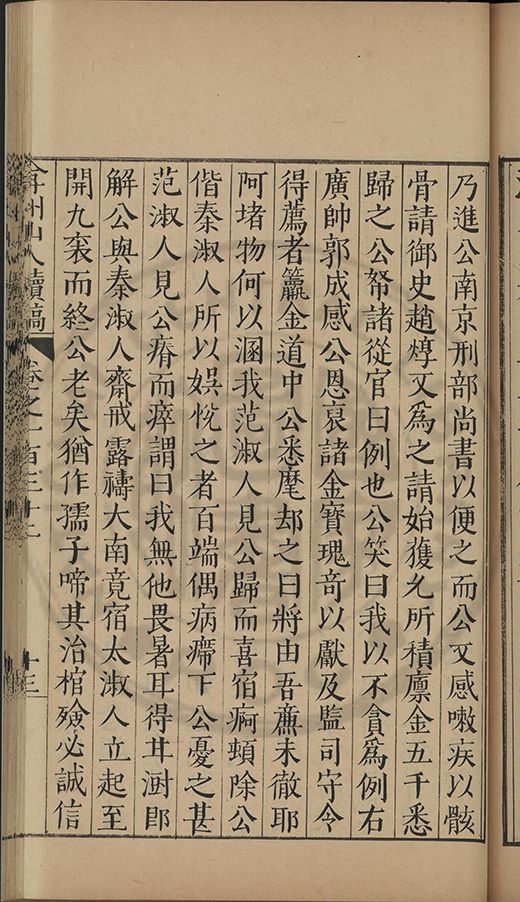 乃進公南京刑部尚書以便之而公又感嗽疾以骸
骨請御史趙㷡又爲之請始獲允所積廩金五千悉
歸之公帑諸從官曰例也公笑曰我以不貪爲例右
廣帥郭成感公恩裒諸金寶瑰奇以獻及監司守令
得薦者籯金道中公悉麾却之曰將由吾㢘未徹耶
阿堵物何以溷我范淑人見公歸而喜宿痾頓除公
偕秦淑人所以娛悅之者百端偶病癤下公憂之甚
范淑人見公瘠而瘁謂曰我無他畏暑耳得井㓑即
解公與秦淑人齋戒露禱大南竟宿太淑人立起至
開九袠而終公老矣猶作孺子啼其治棺殮必誠信
弇州山人續稿 卷之一百三十二 十三